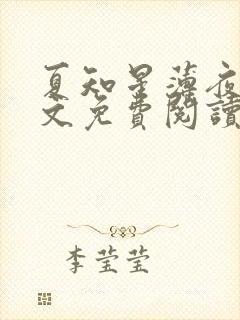 夏知星薄夜
文免費閱讀
李莹莹